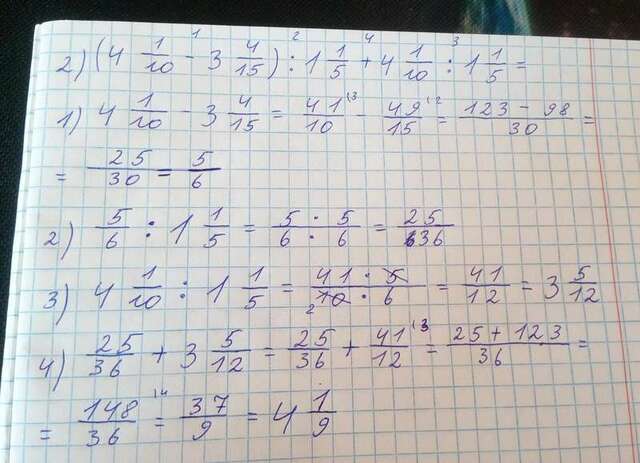 2) (4 1/10 - 3 4/15) : 1 1/5 + 4 1/10 : 1 1/5 =
1) 4 1/10 - 3 4/15 = 41/10 - 49/15 = 123 - 98/30 =
= 25/30 = 5/6
2) 5/6 : 1 1/5 = 5 · 5/6 · 6 = 25/36
3) 4 1/10 : 1 1/5 = 41 · 5/10 · 6 = 41/12 = 3 5/12
4) 25/36 + 3 5/12 = 25/36 + 41/12 = 25 + 123/36 =
= 148/36 = 37/9 = 4 1/9